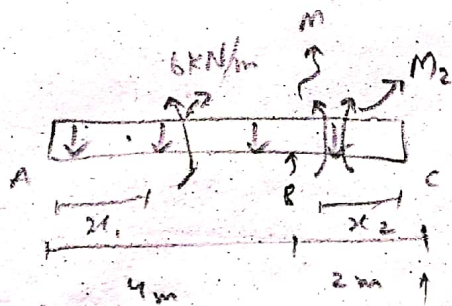 M
6KN/m
M₂
A
B
C
x₁
x₂
4m
2m